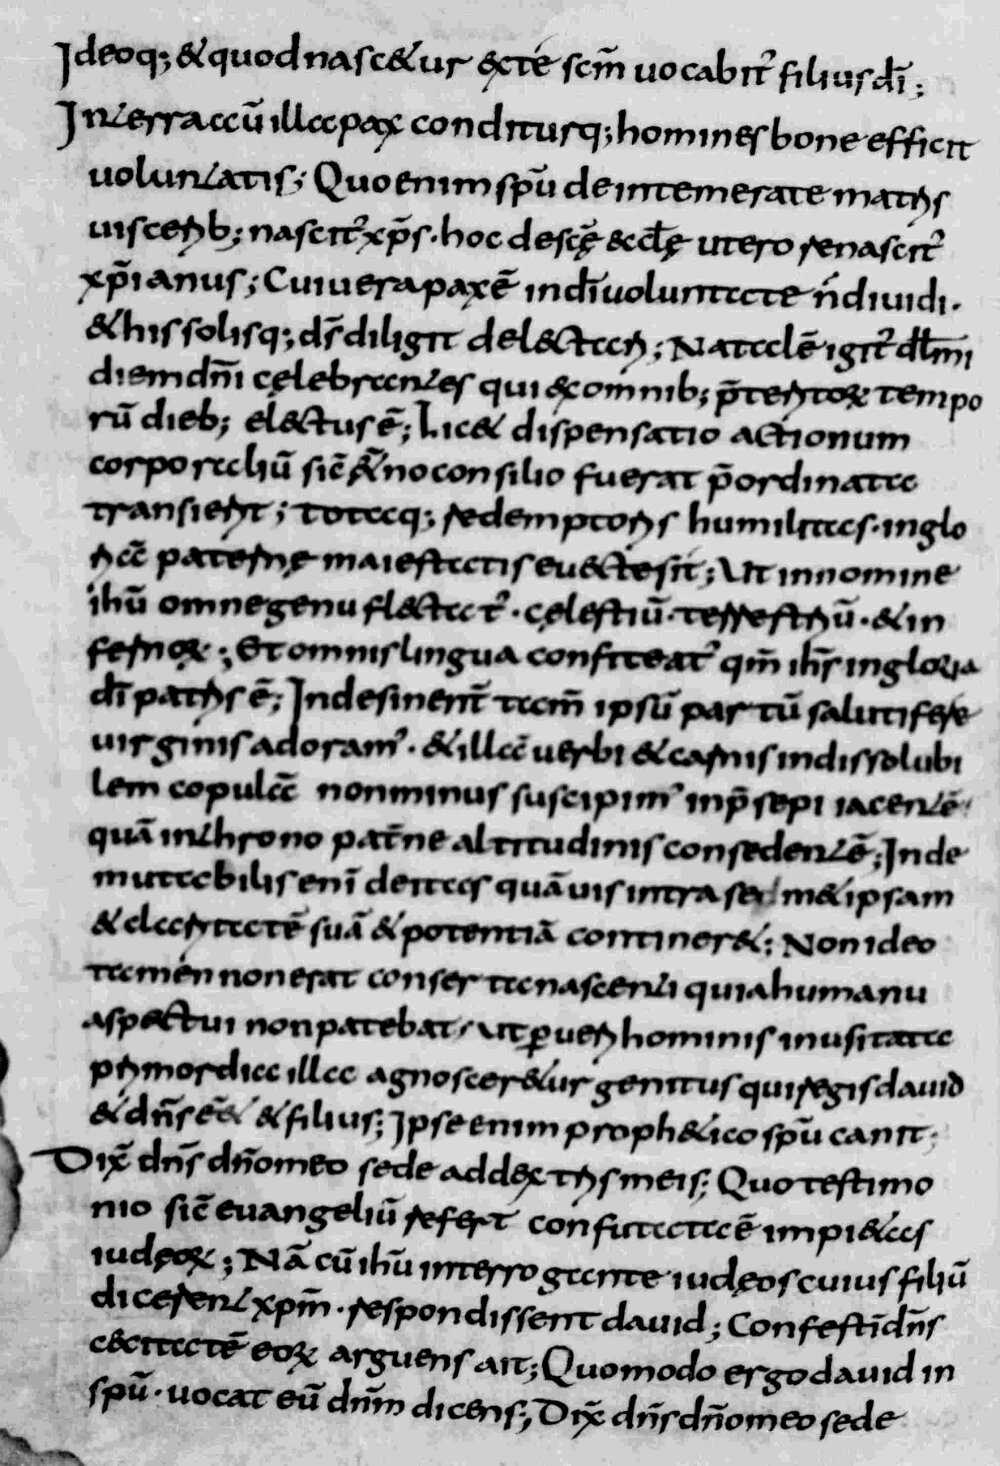 Ideoq; & quod nasc&ur ex te scm̄ uocabit᷑ filius dī;
In terra cū illa pax conditurq; homines bone efficit
uoluntatis; Quo enim spū de intemerate matris
uiscerib; nascit᷑ xp̄s · hoc de scę ęccl̄ę utero renascit᷑
xp̄ianus; Cui uera pax ē in dī uoluntate n̄ diuidi ·
& his solisq; dr̄ diligit delectari; Natalē igit᷑ dhm̄i
diem dn̄i celebrantes qui ex omnib; p̄teritoꝝ tempo
rū dieb; electus ē; Lic& dispensatio actionum
corporaliū sic̄ &̄no consilio fuerat p̄ordinata
transierit; totaq; redemptoris humilitas · in glo
riā paternę maiestatis euecte sit; Ut in nomine
ihū omne genu flectat᷑ · cęlestiū · terrestriū · & in
fernoꝝ; Et omnis lingua confiteat᷑ qm̄ ihs̄ in gloria
dī patris ē; Indesinent̄ tam̄ ipsū partū salutifere
uirginis adoram᷑ · & illā uerbi & carnis indissolubi
lem copulā non minus suscipim᷑ in p̄sepi iacentē
quā in throno pat̄ne altitudinis consedentē; Inde
mutabilis enī deitas quāuis intra sem&ipsam
& claritatē suā & potentiā continer&; Non ideo
tamen non erat conserta nascenti quia humanu
aspectui non patebat / ut ꝑ ueri hominis inusitata
primordia illa agnoscer&ur genitus qui regis dauid
& dn̄s ē& & filius; Ipse enim proph&ico spū canit;
Dix̄ dn̄s dn̄o meo sede ad dextris meis; Quo testimo
nio sic̄ euangeliū refert confutata ē impi&as
iudęoꝝ; Nā cū ihū interrogante iudęos cuius filiū
dicerent xpm̄ · respondissent dauid; Confestī dn̄s
cecitatē eoꝝ arguens ait; Quomodo ergo dauid in
spū · uocat eū dn̄m dicens; Dix̄ dn̄s dn̄o meo sede